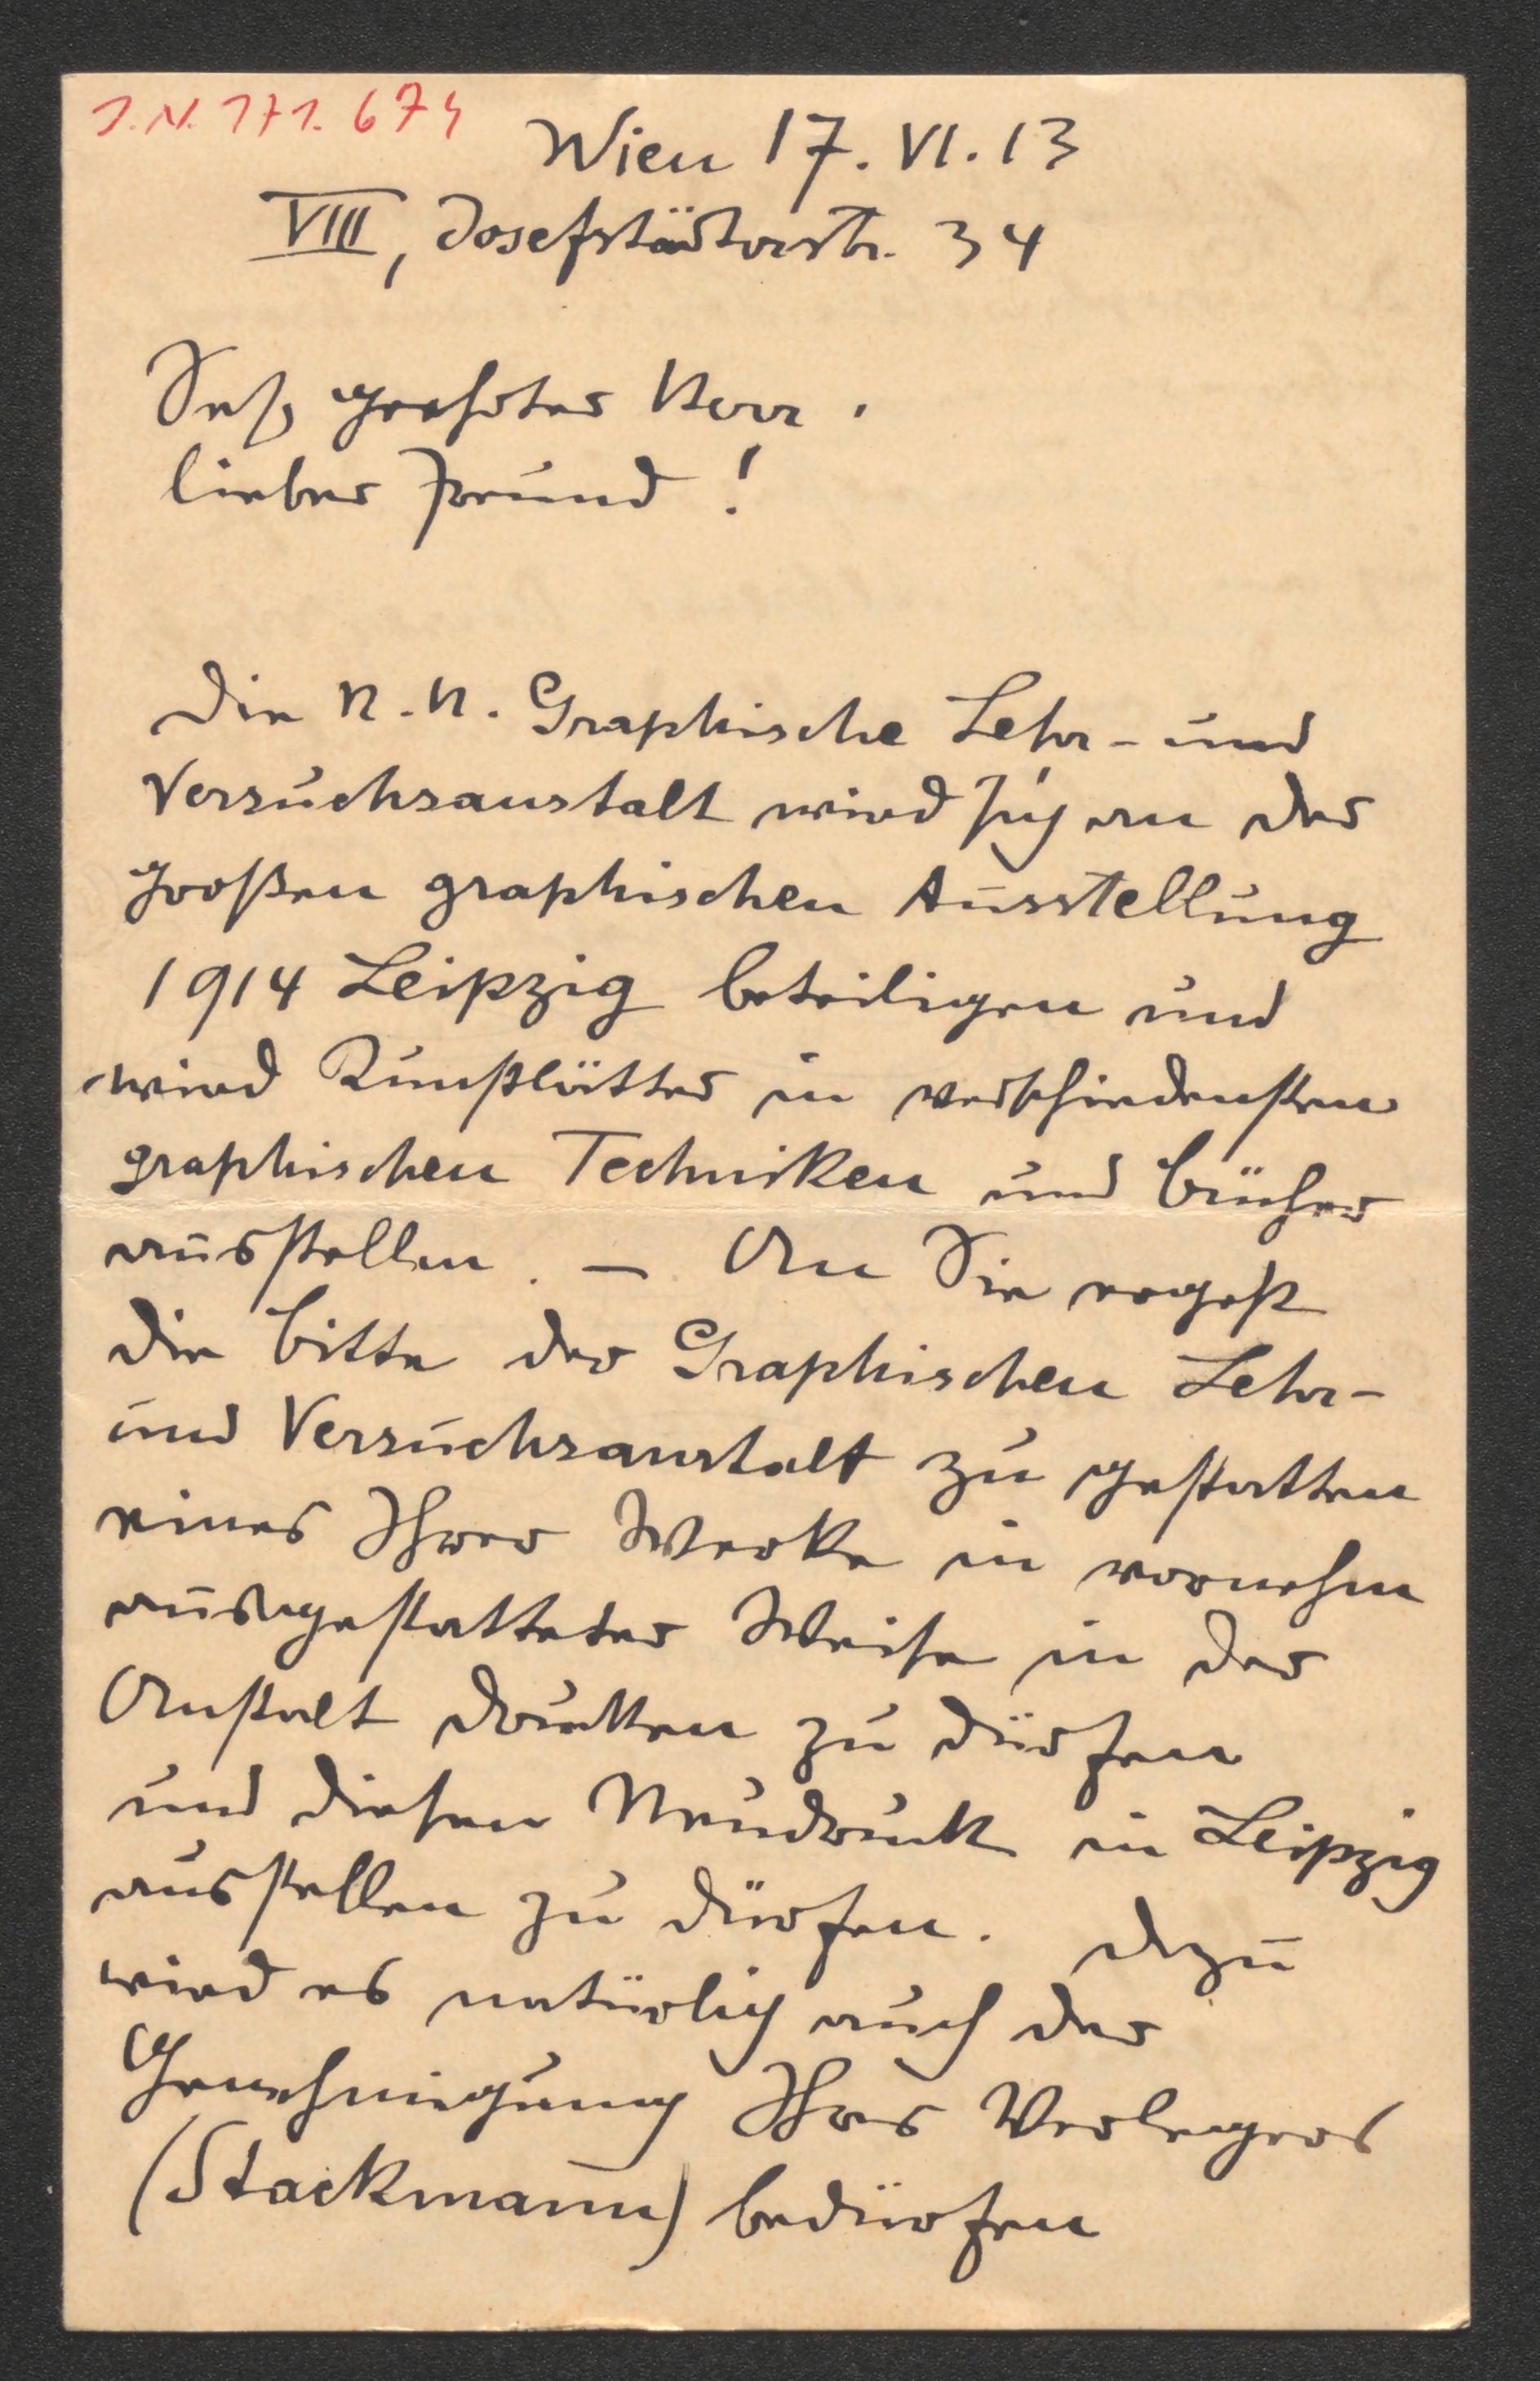 J.N. 171.674
Wien 17. VI. 13
VIII, Josefstädterstr. 34
Sehr geehrter Herr.
lieber Freund!
Die K. K. Graphische Lehr- und
Versuchsanstalt wird sich an der
großen graphischen Ausstellung
1914 Leipzig beteiligen und
wird Kunstblätter in verschiedensten
graphischen Techniken und Bücher
ausstellen. – An Sie ergeht
die Bitte der Graphischen Lehr-
und Versuchsanstalt zu gestatten
eines Ihrer Werke in vornehm
ausgestatteter Weise in der
Anstalt drucken zu dürfen
und diesen Neudruck in Leipzig
ausstellen zu dürfen. Dazu
wird es natürlich auch der
Genehmigung Ihres Verlegers
(Stackmann) bedürfen